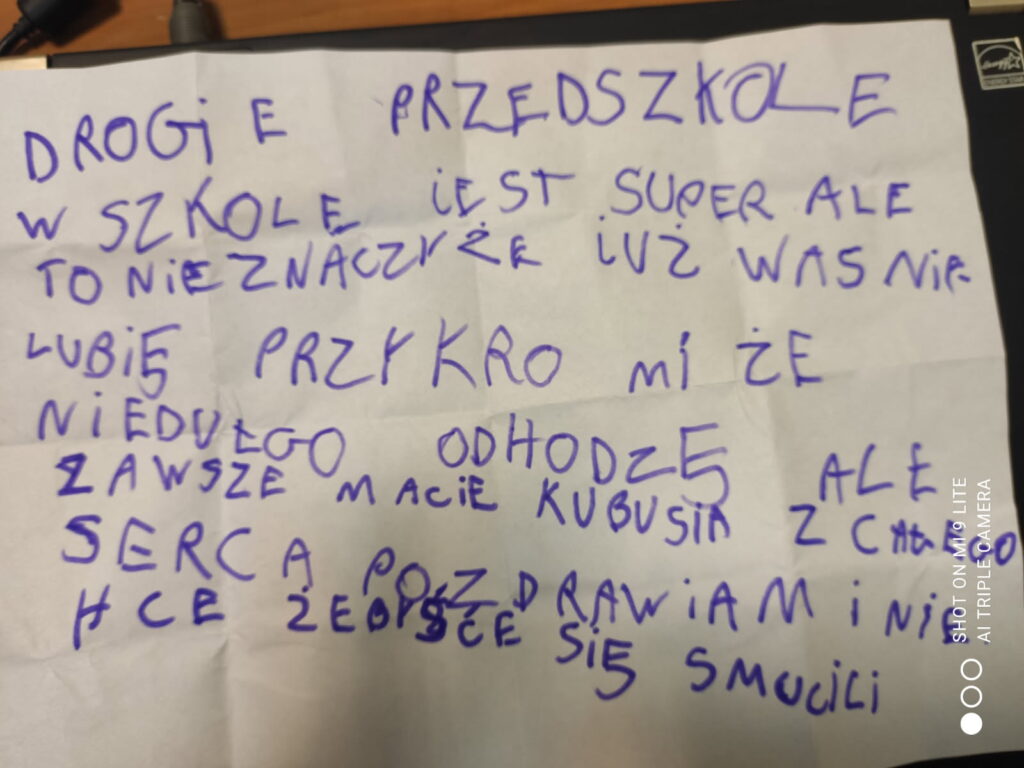 DROGiE PRZEDSZKOLE
W SZKOLE iEST SUPER ALE
TO NiE ZNACZY ŻE iUŻ WAS NiE
LUBiĘ PRZYKRO Mi ŻE
NiEDUŁGO ODHODZĘ ALE
ZAWSZE MACiE KUBUSiA Z CAŁEGO
SERCA POZDRAWiAM i NiE
HCE ŻEBYSCE SiĘ SMUCiLi
SHOT ON MI 9 LITE
AI TRIPLE CAMERA